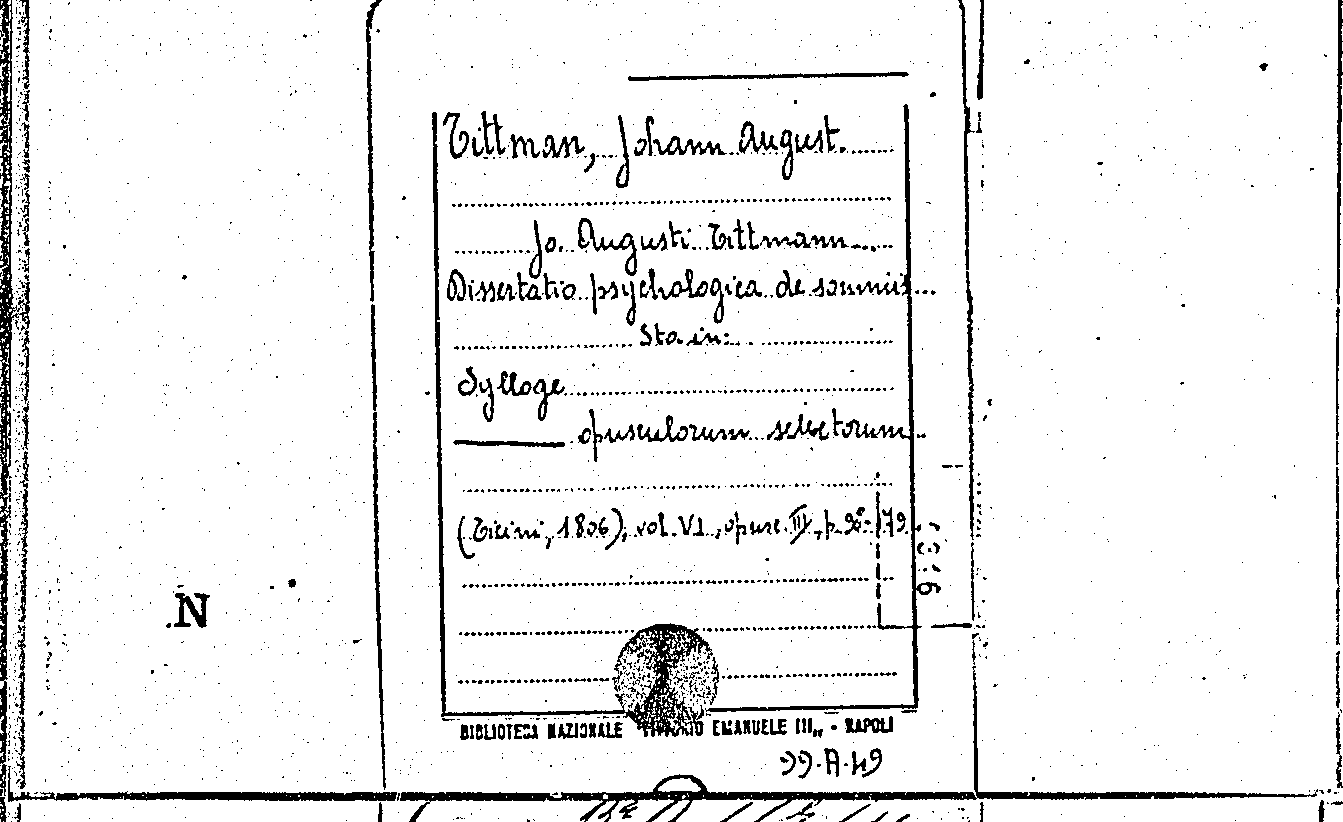 Tittman, Johann August.
Jo. Augusti Tittmann...
Dissertatio psychologica de somniis...
Sta in:
Sylloge
opusculorum selectorum..
(Ticini, 1806), vol. VI, opusc. III, p.
N
BIBLIOTECA NAZIONALE "VITTORIO EMANUELE III„ - NAPOLI